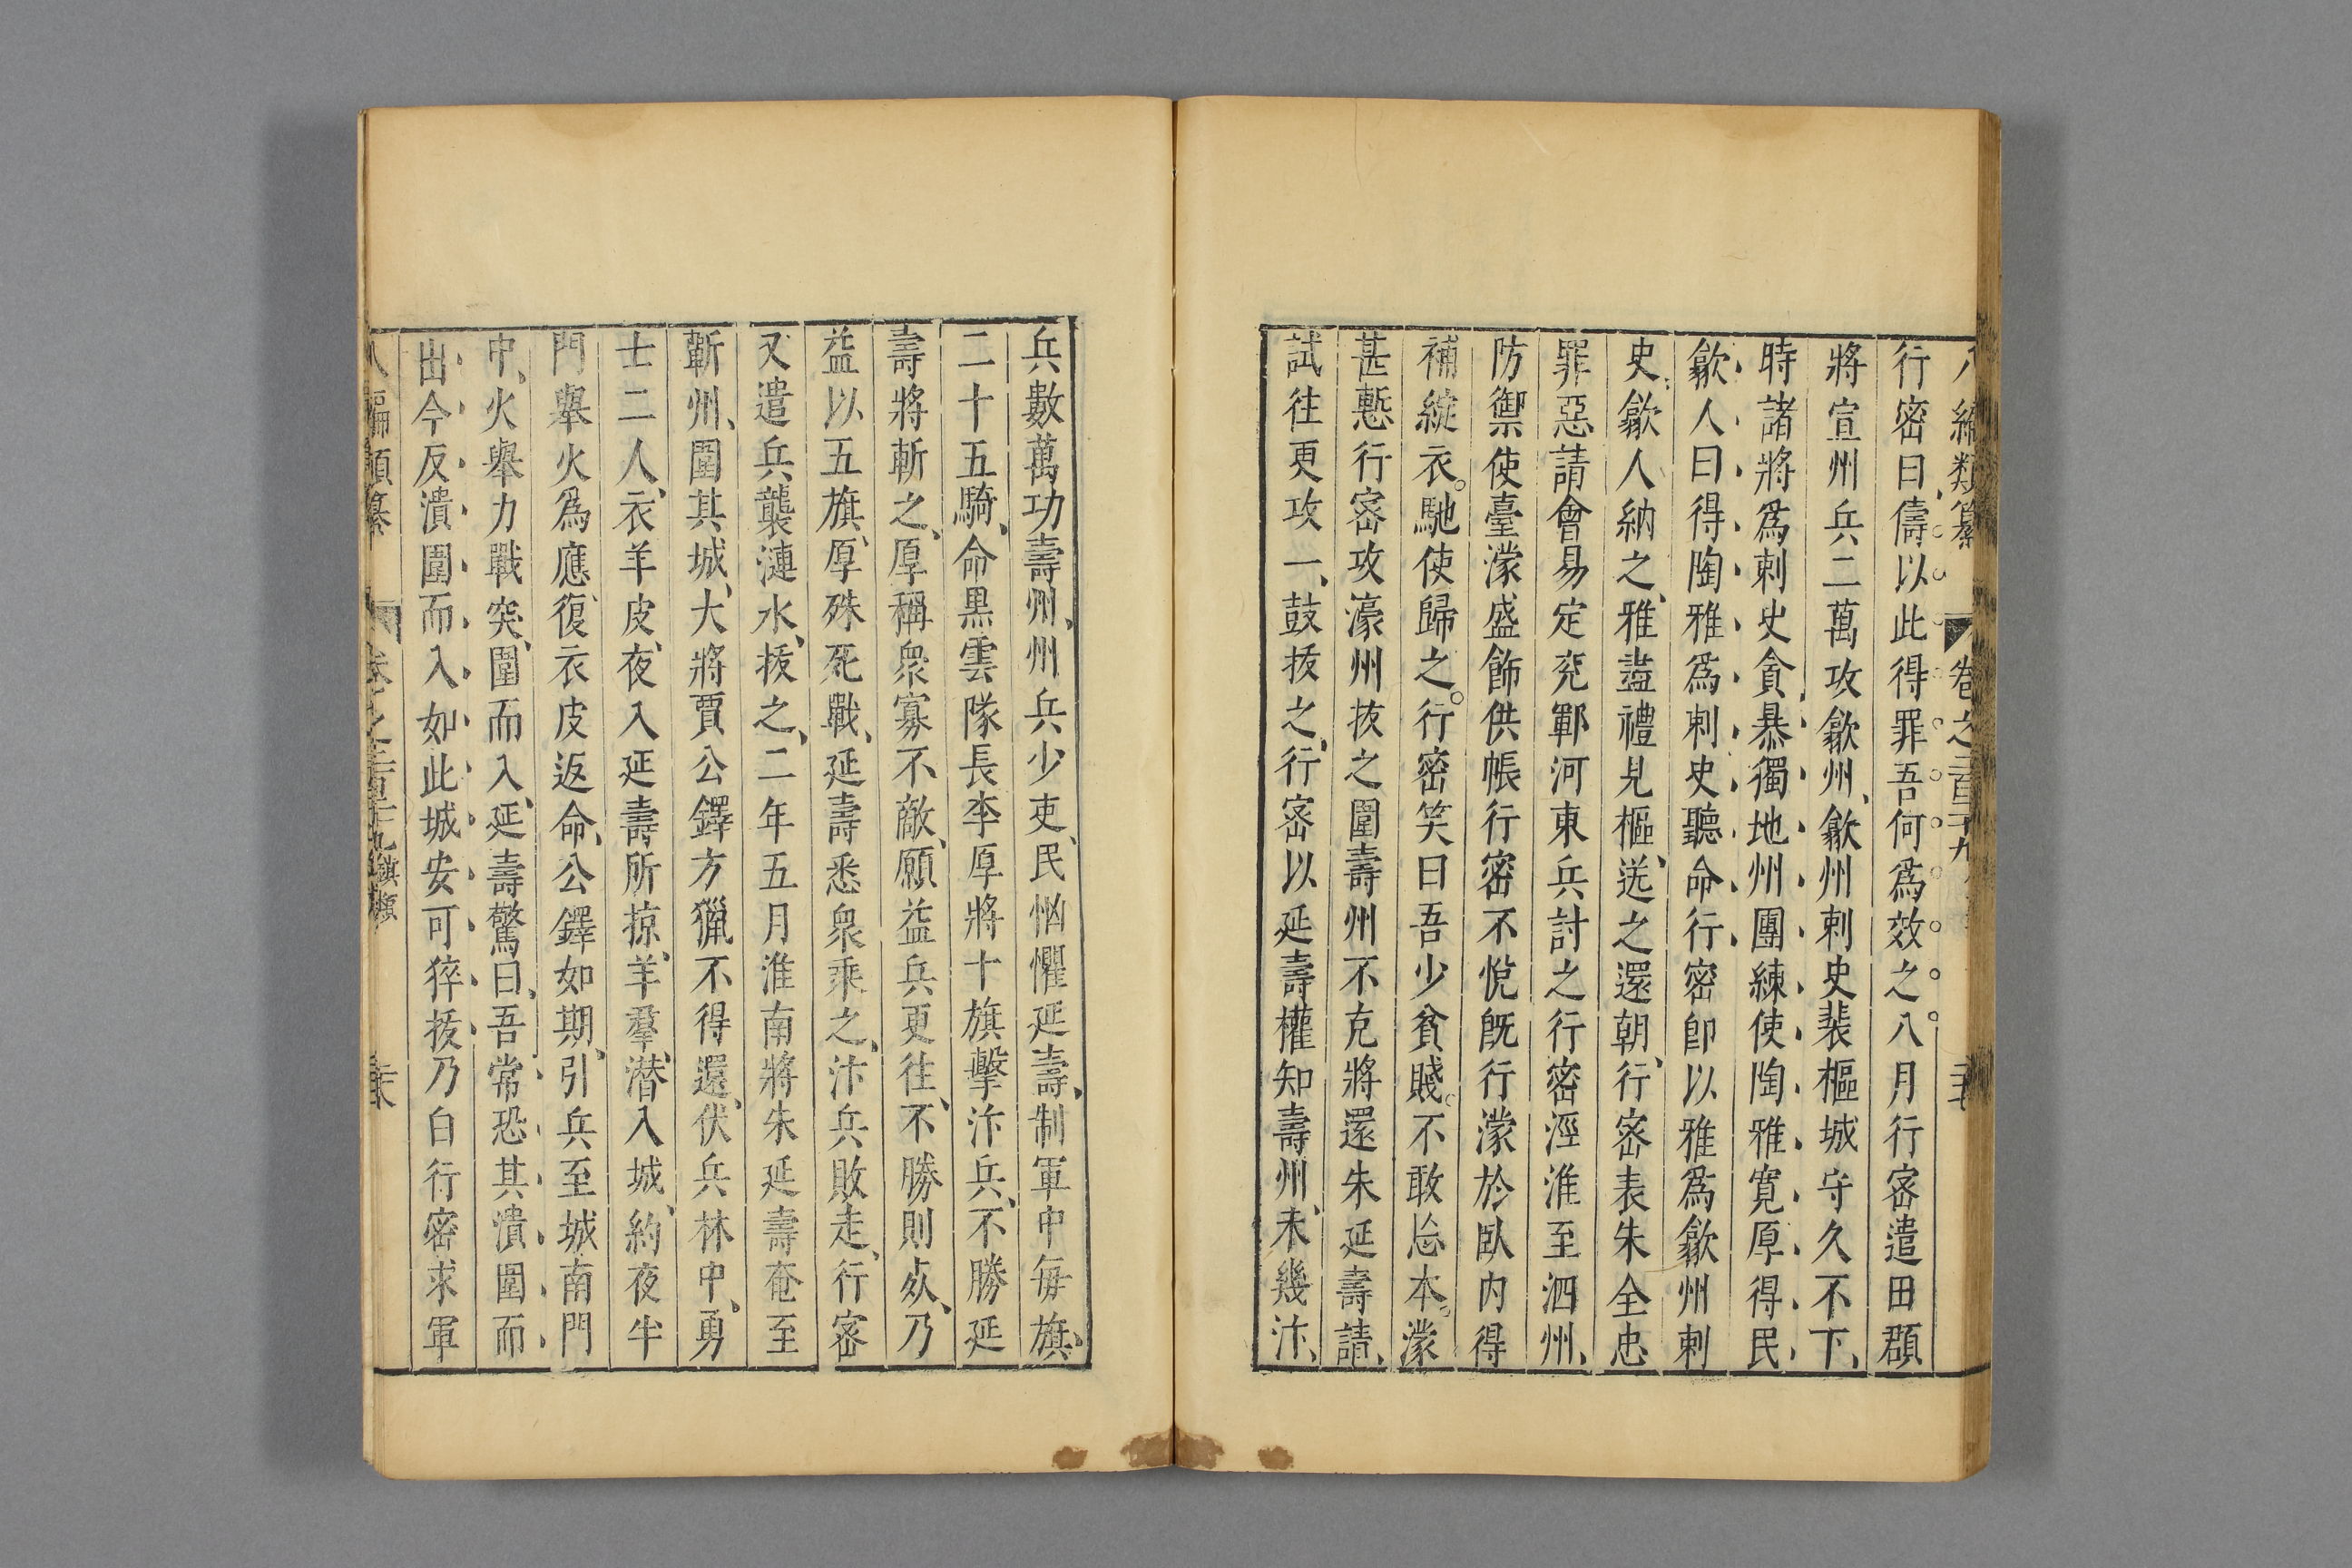 八編類纂 卷之二百二十九
行密曰儔以此得罪吾何爲效之八月行密遣田頵
將宣州兵二萬攻歙州歙州刺史裴樞城守久不下
時諸將爲刺史貪暴獨地州團練使陶雅寬厚得民
歙人曰得陶雅爲刺史聽命行密卽以雅爲歙州刺
史歙人納之雅盡禮見樞送之還朝行密表朱全忠
罪惡請會易定兖鄆河東兵討之行密涇淮至泗州
防禦使臺濛盛飾供帳行密不悅旣行濛於臥内得
補綻衣馳使歸之行密笑曰吾少貧賤不敢忘本濛
甚慙行密攻濠州拔之圍壽州不克將還朱延壽請
試往更攻一鼓拔之行密以延壽權知壽州未幾汴
兵數萬功壽州州兵少吏民恟懼延壽制軍中每旗
二十五騎命黑雲隊長李厚將十旗擊汴兵不勝延
壽將斬之厚稱衆寡不敵願益兵更往不勝則死乃
益以五旗厚殊死戰延壽悉衆乘之汴兵敗走行密
又遣兵襲漣水拔之二年五月淮南將朱延壽奄至
蘄州圍其城大將賈公鐸方獵不得還伏兵林中勇
士二人衣羊皮夜入延壽所掠羊羣潜入城約夜半
門舉火爲應復衣皮返命公鐸如期引兵至城南門
中火舉力戰突圍而入延壽驚曰吾常恐其潰圍而
出今反潰圍而入如此城安可猝拔乃白行密求軍
八編類纂